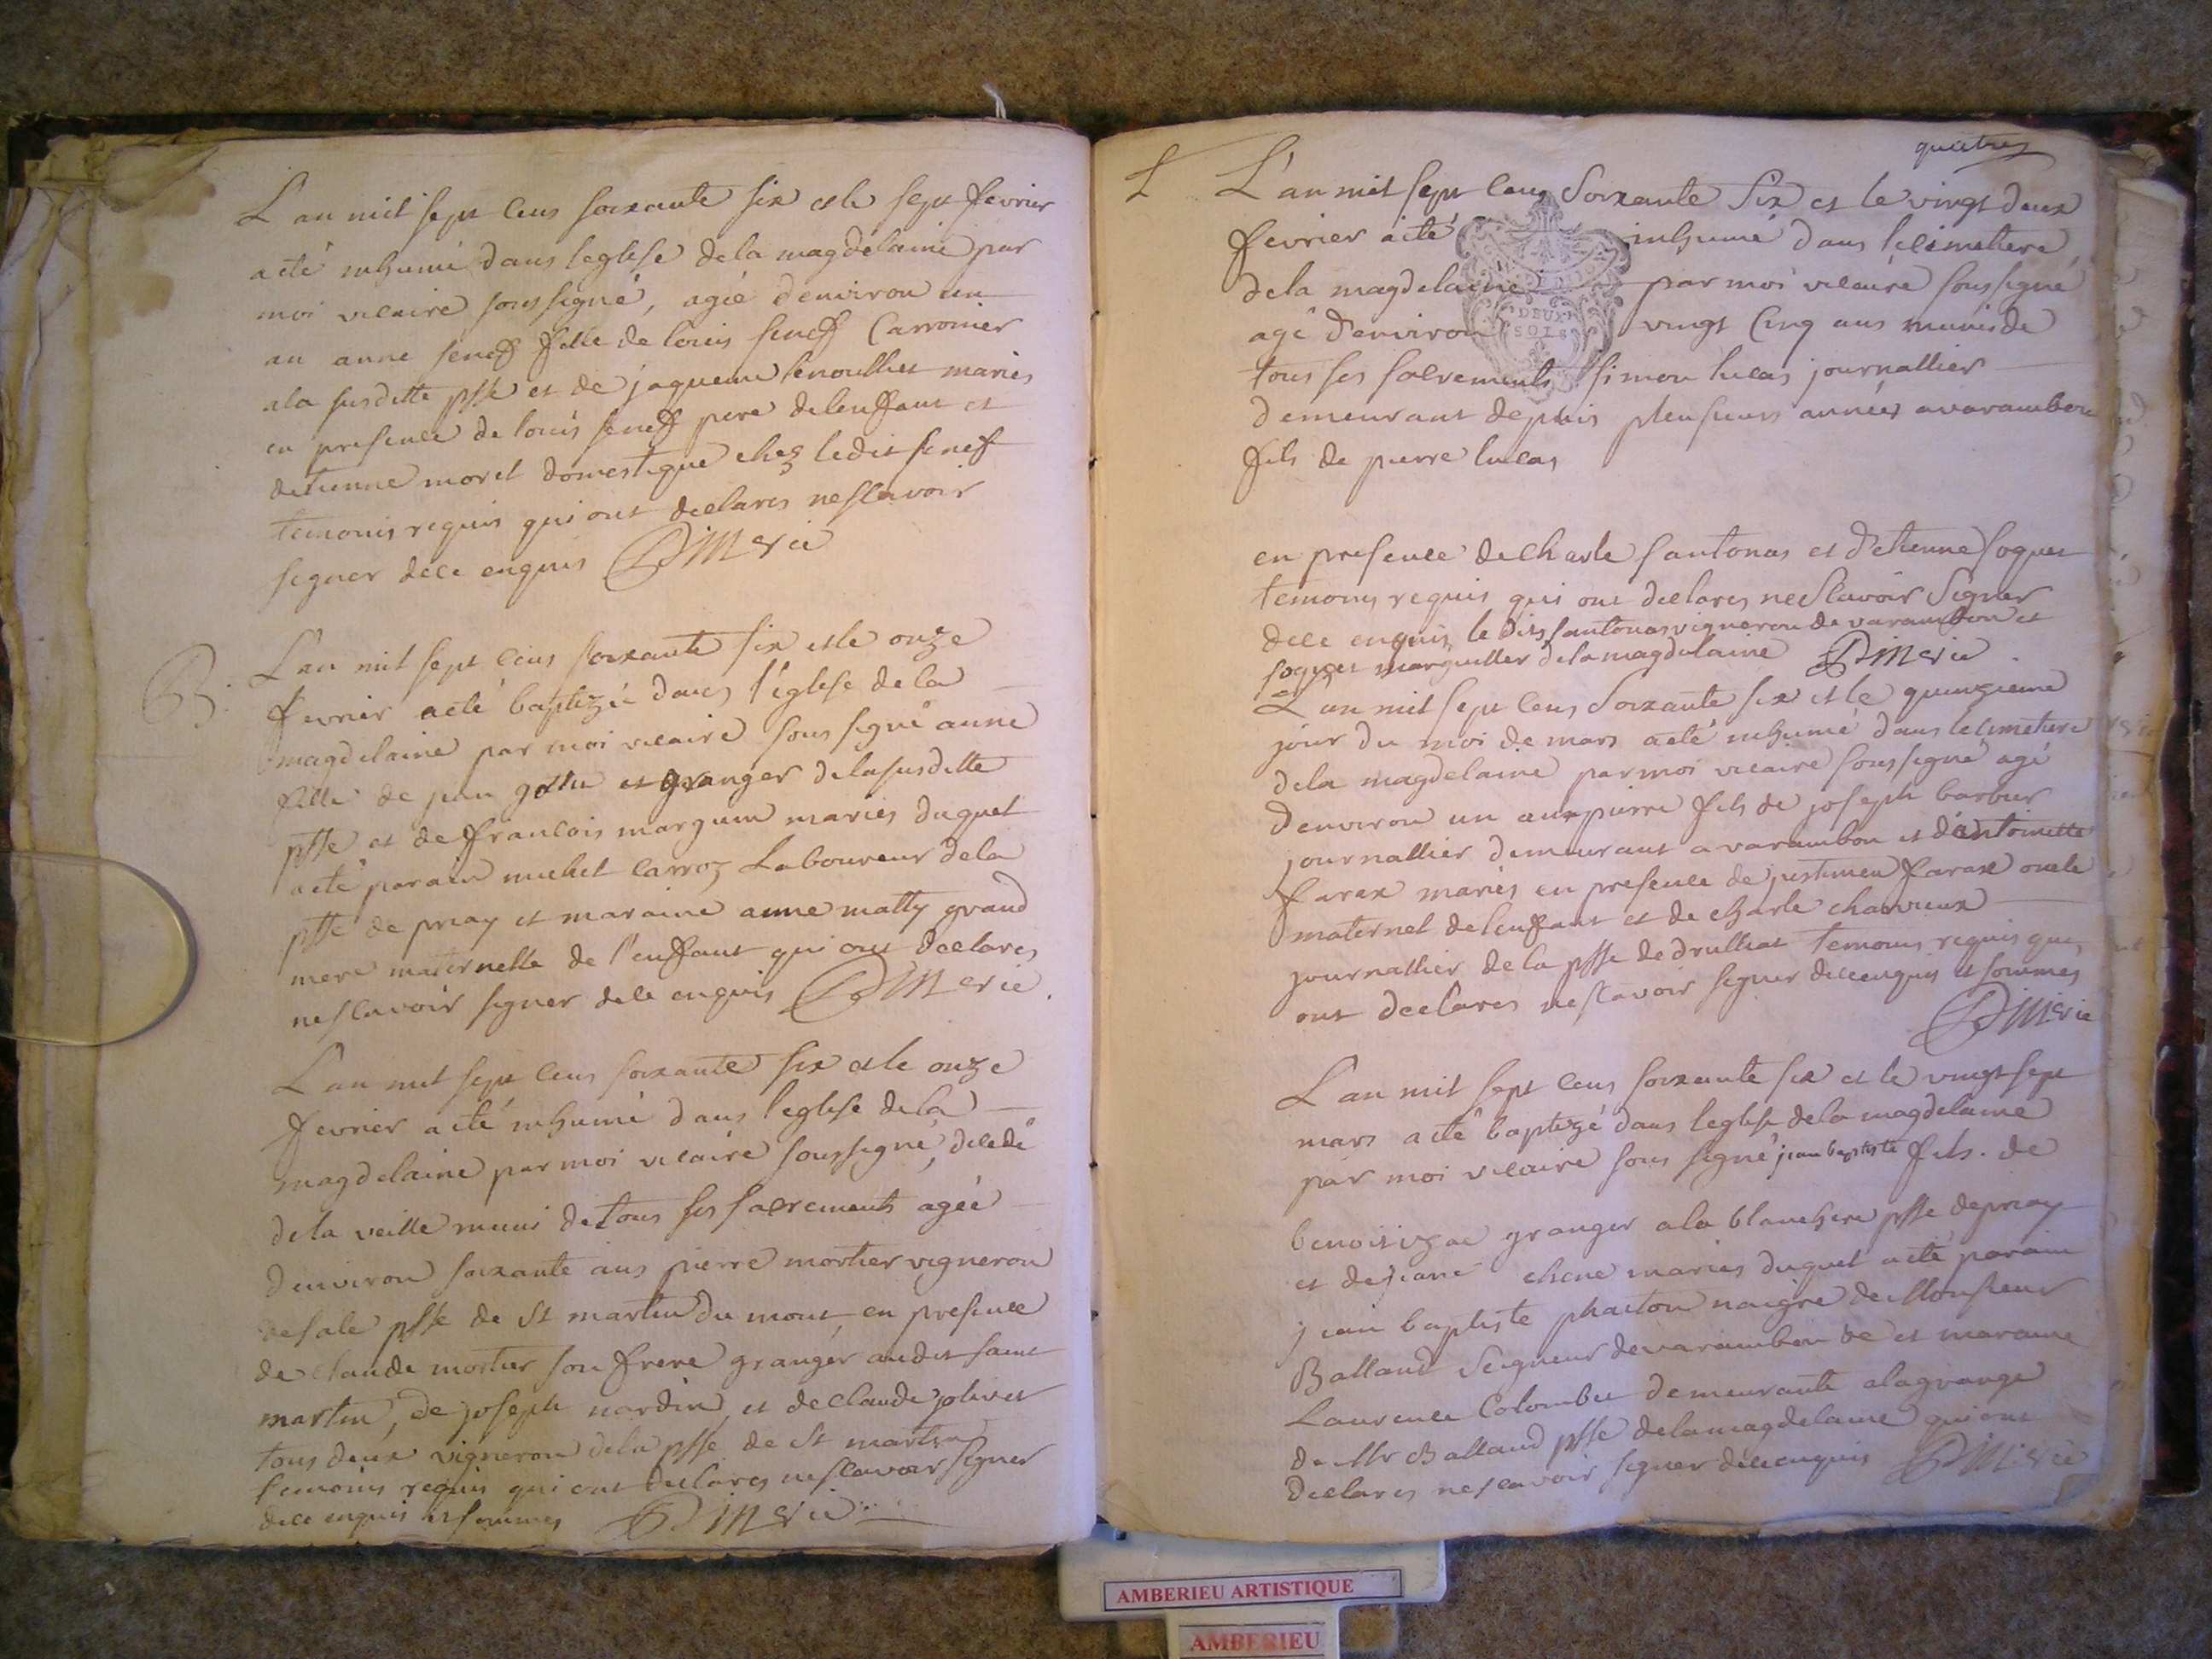 L'an mil sept cens soixante six et le sept fevrier
a eté inhumé dans leglise de la magdelaine par
moi vicaire soussigné, agée d'environ un
an anne seneff fille de louis seneff Carronier
a la susditte psse et de jaqueme mariés
en presence de louis seneff pere de lenffant et
detienne morel domestique chez ledit senef
temoins requis qui ont declarés ne scavoir
signer de ce enquis DMerie
B.
L'an mil sept cens soixante six et le onze
fevrier a eté baptizée dans l'eglise de la
magdelaine par moi vicaire sous signé anne
fille de jean et granger de la susditte
psse et de francois mariés duquel
a eté parain michel carroz Laboureur de la
psse de priay et maraine anne matty grand
mere maternelle de l'enffant qui ont declarés
ne scavoir signer de ce enquis DMerie.
L'an mil sept cens soixante six et le onze
fevrier a eté inhumé dans l'eglise de la
magdelaine par moi vicaire soussigné, decedé
de la veille muni de tous ses sacrements agée
d'environ soixante ans pierre mortier vigneron
psse de St martin du mont, en presence
de claude mortier son frere granger audit saint
martin, de joseph nardin, et de claude
tous deux vigneron de la psse de St martin
temoins requis qui ont declarés ne scavoir signer
de ce enquis et sommés DMerie
quatre
L'an mil sept cens soixante six et le vingt deux
fevrier a eté inhumé dans le cimetiere
de la magdelaine par moi vicaire soussigné
agé d'environ vingt cinq ans munis de
DEUX
SOLS
tous ses sacrements simon lucas journallier
demeurant depuis pleusieurs années a varambon
fils de pierre lucas
en presence de charle santonas et d'etienne soquet
temoins requis qui ont declarés ne scavoir signer
de ce enquis le dits santonas vigneron de varambon et
soquet marguiller de la magdelaine DMerie
L'an mil sept cens soixante six et le quinzieme
jour du moi de mars a eté inhumé dans le cimetiere
de la magdelaine par moi vicaire soussigné agé
d'environ un an pierre fils de joseph barbier
journallier demeurant a varambon et d'antoinette
farax mariés en presence de farax oncle
maternel de lenffant et de charle
journallier de la psse de druillat temoins requis qui
ont declarés ne scavoir signer de ce enquis et sommés
DMerie
L'an mil sept cens soixante six et le vingt sept
mars a eté baptizé dans leglise de la magdelaine
par moi vicaire sous signé jean baptiste fils de
benoit granger a la blanchere psse de priay
et de jeane chene mariés duquel a eté parain
jean baptiste phaeton naigre de Monsieur
Balland Seigneur de varambon &c et maraine
Laurence Colombet demeurante a la grange
de Mr Balland psse de la magdelaine qui ont
declarés ne scavoir signer de ce enquis DMerie
AMBERIEU ARTISTIQUE
AMBERIEU